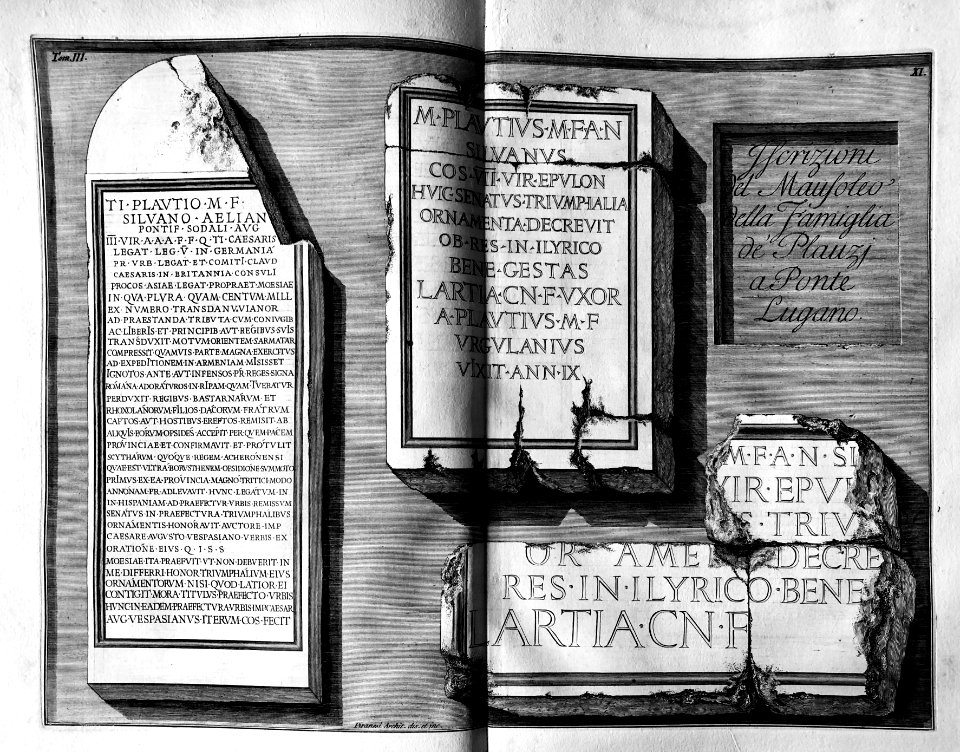 Tom. III.
XI.
TI · PLAVTIO · M · F ·
SILVANO · AELIAN
PONTIF · SODALI · AVG
III · VIR · A · A · A · F · F · Q · TI · CAESARIS
LEGAT · LEG · V · IN · GERMANIA
PR · VRB · LEGAT · ET · COMITI · CLAVD
CAESARIS · IN · BRITANNIA · CONSVLI
PROCOS · ASIAE · LEGAT · PROPRAET · MOESIAE
IN · QVA · PLVRA · QVAM · CENTVM · MILL
EX · NVMERO · TRANSDANVVIANOR
AD · PRAESTANDA · TRIBVTA · CVM · CONIVGIB
AC · LIBERIS · ET · PRINCIPIB · AVT · REGIBVS · SVIS
TRANSDVXIT · MOTVM · ORIENTEM · SARMATAR
COMPRESSIT · QVAMVIS · PARTE · MAGNA · EXERCITVS
AD · EXPEDITIONEM · IN · ARMENIAM · MISISSET
IGNOTOS · ANTE · AVT · INFENSOS · P · R · REGES · SIGNA
ROMANA · ADORATVROS · IN · RIPAM · QVAM · TVEBATVR
PERDVXIT · REGIBVS · BASTARNARVM · ET
RHOXOLANORVM · FILIOS · DACORVM · FRATRVM
CAPTOS · AVT · HOSTIBVS · EREPTOS · REMISIT · AB
ALIQVIS · EORVM · OPSIDES · ACCEPIT · PER · QVEM · PACEM
PROVINCIAE · ET · CONFIRMAVIT · ET · PROTVLIT
SCYTHARVM · QVOQVE · REGEM · ACHERONENSI
QVAE · EST · VLTRA · BORVSTHENEN · OPSIDIONE · SVMMOTO
PRIMVS · EX · EA · PROVINCIA · MAGNO · TRITICI · MODO
ANNONAM · P · R · ADLEVAVIT · HVNC · LEGATVM · IN
IN · HISPANIAM · AD · PRAEFECTVR · VRBIS · REMISSVM
SENATVS · IN · PRAEFECTVRA · TRIVMPHALIBVS
ORNAMENTIS · HONORAVIT · AVCTORE · IMP
CAESARE · AVGVSTO · VESPASIANO · VERBIS · EX
ORATIONE · EIVS · Q · I · S · S
MOESIAE · ITA · PRAEFVIT · VT · NON · DEBVERIT · IN
ME · DIFFERRI · HONOR · TRIVMPHALIVM · EIVS
ORNAMENTORVM · NISI · QVOD · LATIOR · EI
CONTIGIT · MORA · TITVLVS · PRAEFECTO · VRBIS
HVNC · IN · EADEM · PRAEFECTVRA · VRBIS · IMP · CAESAR
AVG · VESPASIANVS · ITERVM · COS · FECIT
M · PLAVTIVS · M · F · A · N
SILVANVS
COS · VII · VIR · EPVLON
HVIC · SENATVS · TRIVMPHALIA
ORNAMENTA · DECREVIT
OB · RES · IN · ILYRICO
BENE · GESTAS
LARTIA · CN · F · VXOR
A · PLAVTIVS · M · F
VRGVLANIVS
VIXIT · ANN · IX
Iscrizioni
del Mausoleo
della Famiglia
de' Plauzj
a Ponte
Lugano.
M · F · A · N · SI
VIR · EPV
S · TRIV
OR AME DECRE
RES · IN · ILYRICO · BENE
LARTIA · CN · F
Piranesi Archit. dis. et inc.